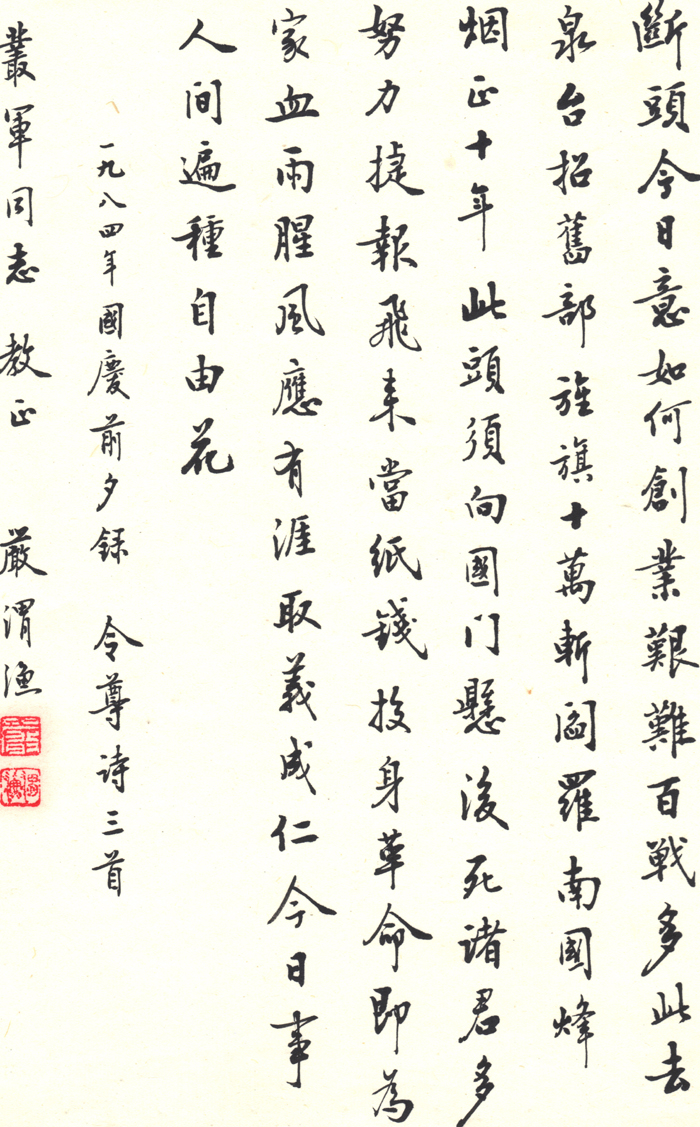 斷頭今日意如何創業艱難百戰多此去
泉台招舊部旌旗十萬斬閻羅南國烽
烟正十年此頭須向國门懸後死诸君多
努力捷報飛来當紙錢投身革命即為
家血雨腥風應有涯取義成仁今日事
人间遍種自由花
一九八四年國慶前夕録 令尊诗三首
叢軍同志 教正 嚴渭漁